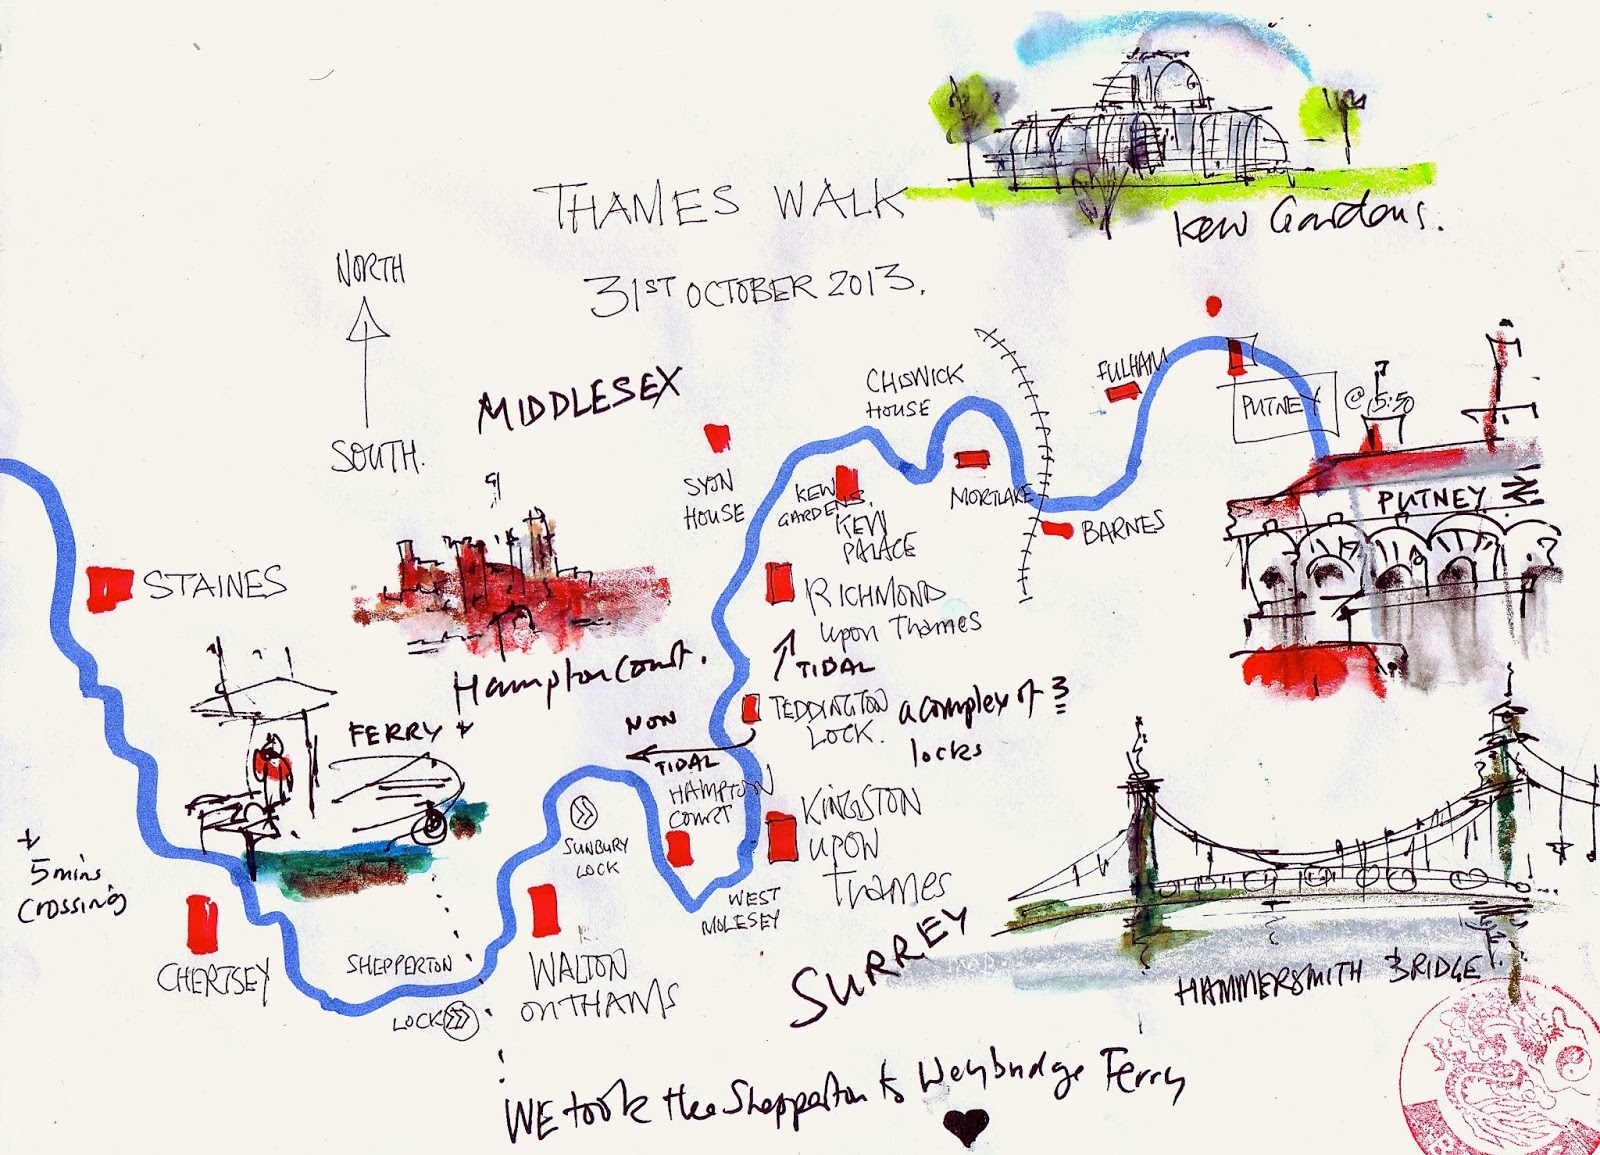 THAMES WALK
31ST OCTOBER 2013.
Kew Gardens.
NORTH
SOUTH.
MIDDLESEX
CHISWICK
HOUSE
FULHAM
PUTNEY
@ 15:50
PUTNEY
SYON
HOUSE
KEW
GARDENS.
KEW
PALACE
MORTLAKE
BARNES
STAINES
RICHMOND
upon Thames
TIDAL
Hampton Court.
TEDDINGTON
LOCK.
a complex of 3
locks
NON
TIDAL
FERRY
HAMPTON
COURT
KINGSTON
UPON
Thames
SUNBURY
LOCK
5 mins
Crossing
WEST
MOLESEY
SURREY
CHERTSEY
SHEPPERTON
LOCK
WALTON
ON THAMS
HAMMERSMITH BRIDGE
WE took the Shepperton to Weybridge Ferry